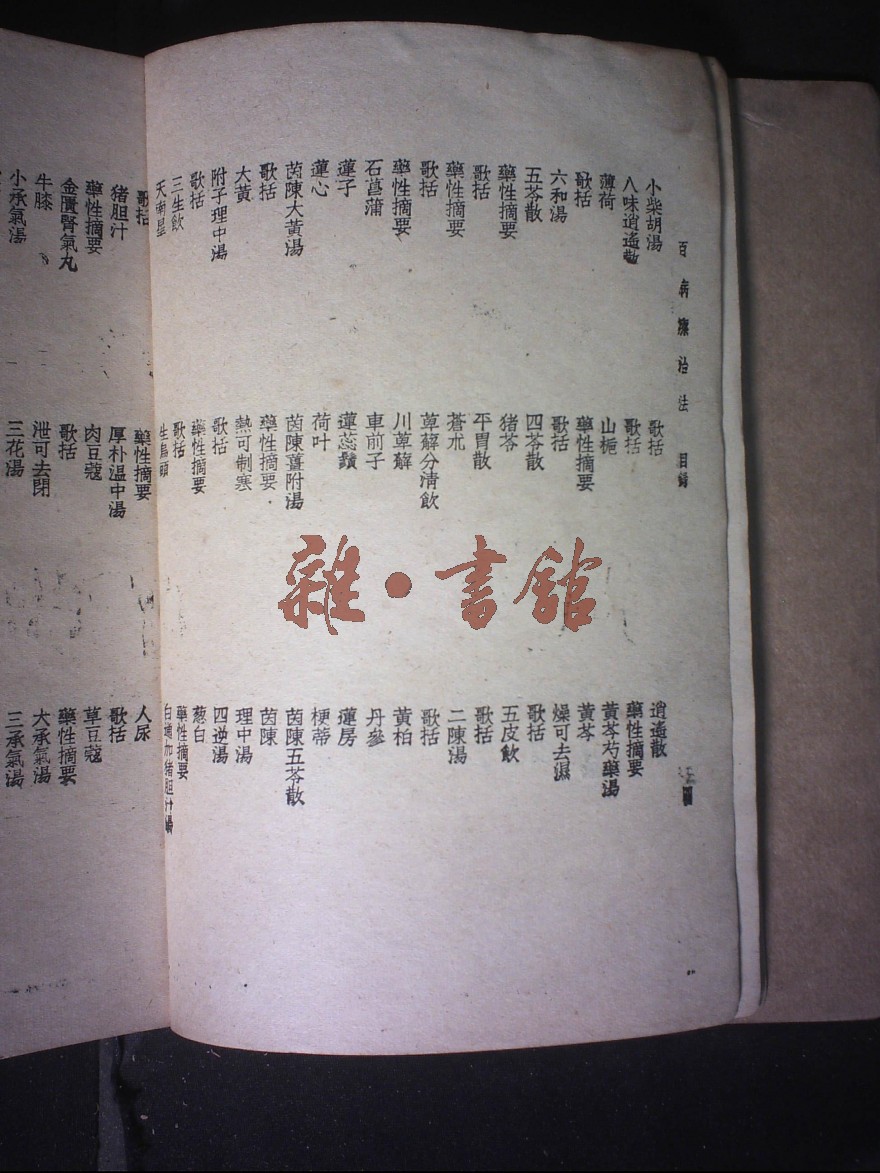 百病療治法 目録
小柴胡湯 歌括 逍遙散
八味逍遙散 歌括 藥性摘要
薄荷 山梔 黃芩芍藥湯
歌括 藥性摘要 黃芩
六和湯 歌括 燥可去濕
五苓散 四苓散 歌括
藥性摘要 猪苓 五皮飲
歌括 平胃散 歌括
藥性摘要 蒼朮 二陳湯
歌括 萆薢分清飲 歌括
藥性摘要 川萆薢 黃柏
石菖蒲 車前子 丹參
蓮子 蓮蕊鬚 蓮房
蓮心 荷叶 梗蒂
茵陳大黃湯 茵陳薑附湯 茵陳五苓散
歌括 藥性摘要 茵陳
大黃 熱可制寒 理中湯
附子理中湯 歌括 四逆湯
歌括 藥性摘要 葱白
三生飲 歌括 藥性摘要
天南星 生烏頭 白通加猪胆汁湯
歌括 藥性摘要 人尿
猪胆汁 厚朴温中湯 歌括
藥性摘要 肉豆蔻 草豆蔻
金匱腎氣丸 歌括 藥性摘要
牛膝 泄可去閉 大承氣湯
小承氣湯 三花湯 三承氣湯
雜·書館